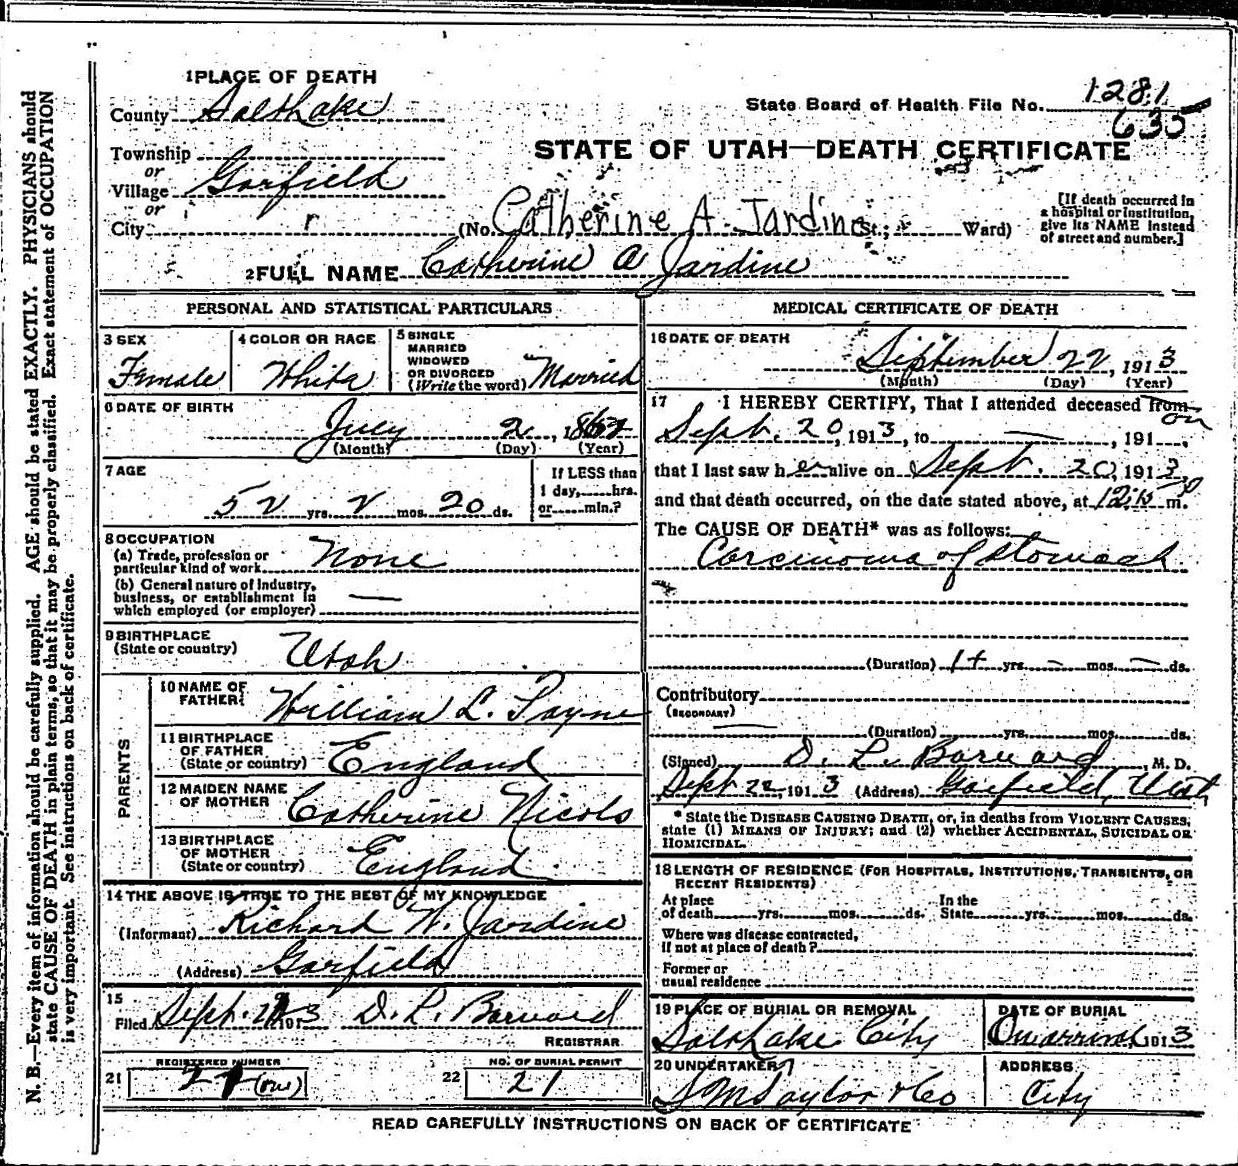 1 PLACE OF DEATH
County Salt Lake
State Board of Health File No. 1281
635
Township
or
Village Garfield
or
City
STATE OF UTAH—DEATH CERTIFICATE
(No. Catherine A. Jardine St.; Ward)
[If death occurred in
a hospital or institution,
give its NAME instead
of street and number.]
2 FULL NAME Catherine A Jardine
PERSONAL AND STATISTICAL PARTICULARS
3 SEX
Female
4 COLOR OR RACE
White
5 SINGLE
MARRIED
WIDOWED
OR DIVORCED
(Write the word) Married
6 DATE OF BIRTH
July 2, 186
(Month) (Day) (Year)
7 AGE
52 yrs. 2 mos. 20 ds.
If LESS than
1 day, hrs.
or min.?
8 OCCUPATION
(a) Trade, profession or
particular kind of work None
(b) General nature of Industry,
business, or establishment in
which employed (or employer) —
9 BIRTHPLACE
(State or country) Utah
PARENTS
10 NAME OF
FATHER William L. Payne
11 BIRTHPLACE
OF FATHER
(State or country) England
12 MAIDEN NAME
OF MOTHER Catherine Nicols
13 BIRTHPLACE
OF MOTHER
(State or country) England
14 THE ABOVE IS TRUE TO THE BEST OF MY KNOWLEDGE
(Informant) Richard W. Jardine
(Address) Garfield
15
Filed Sept. 1913 D. L. Barnard
REGISTRAR
REGISTERED NUMBER
21 (one)
NO. OF BURIAL PERMIT
22 21
MEDICAL CERTIFICATE OF DEATH
16 DATE OF DEATH
September 22, 1913
(Month) (Day) (Year)
17 I HEREBY CERTIFY, That I attended deceased from
on
Sept. 20, 1913, to —, 191
that I last saw her alive on Sept. 20, 1913
and that death occurred, on the date stated above, at 12.15 P m.
The CAUSE OF DEATH* was as follows:
Carcinoma of Stomach
(Duration) 1+ yrs. — mos. — ds.
Contributory
(SECONDARY)
— (Duration) yrs. mos. ds.
(Signed) D. L. Barnard, M. D.
Sept 22, 1913 (Address) Garfield, Utah
* State the DISEASE CAUSING DEATH, or, in deaths from VIOLENT CAUSES,
state (1) MEANS OF INJURY; and (2) whether ACCIDENTAL, SUICIDAL OR
HOMICIDAL.
18 LENGTH OF RESIDENCE (FOR HOSPITALS, INSTITUTIONS, TRANSIENTS, OR
RECENT RESIDENTS)
At place
of death yrs. mos. ds. In the
State yrs. mos. ds.
Where was disease contracted,
if not at place of death?
Former or
usual residence
19 PLACE OF BURIAL OR REMOVAL
Salt Lake City
DATE OF BURIAL
On arrival, 1913
20 UNDERTAKER
S M Taylor & Co
ADDRESS
City
READ CAREFULLY INSTRUCTIONS ON BACK OF CERTIFICATE
N. B.—Every item of information should be carefully supplied. AGE should be stated EXACTLY. PHYSICIANS should
state CAUSE OF DEATH in plain terms, so that it may be properly classified. Exact statement of OCCUPATION
is very important. See instructions on back of certificate.